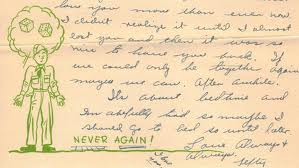 love you more than ever now.
I didn't realize it until I almost
lost you and then it was so
nice to have you back. If
we could only be together again
maybe we can. After awhile.
It's about bedtime and
I'm awfully bad so maybe I
should go to bed so until later.
Love Always &
Always.
Lefty
NEVER AGAIN!
I love you